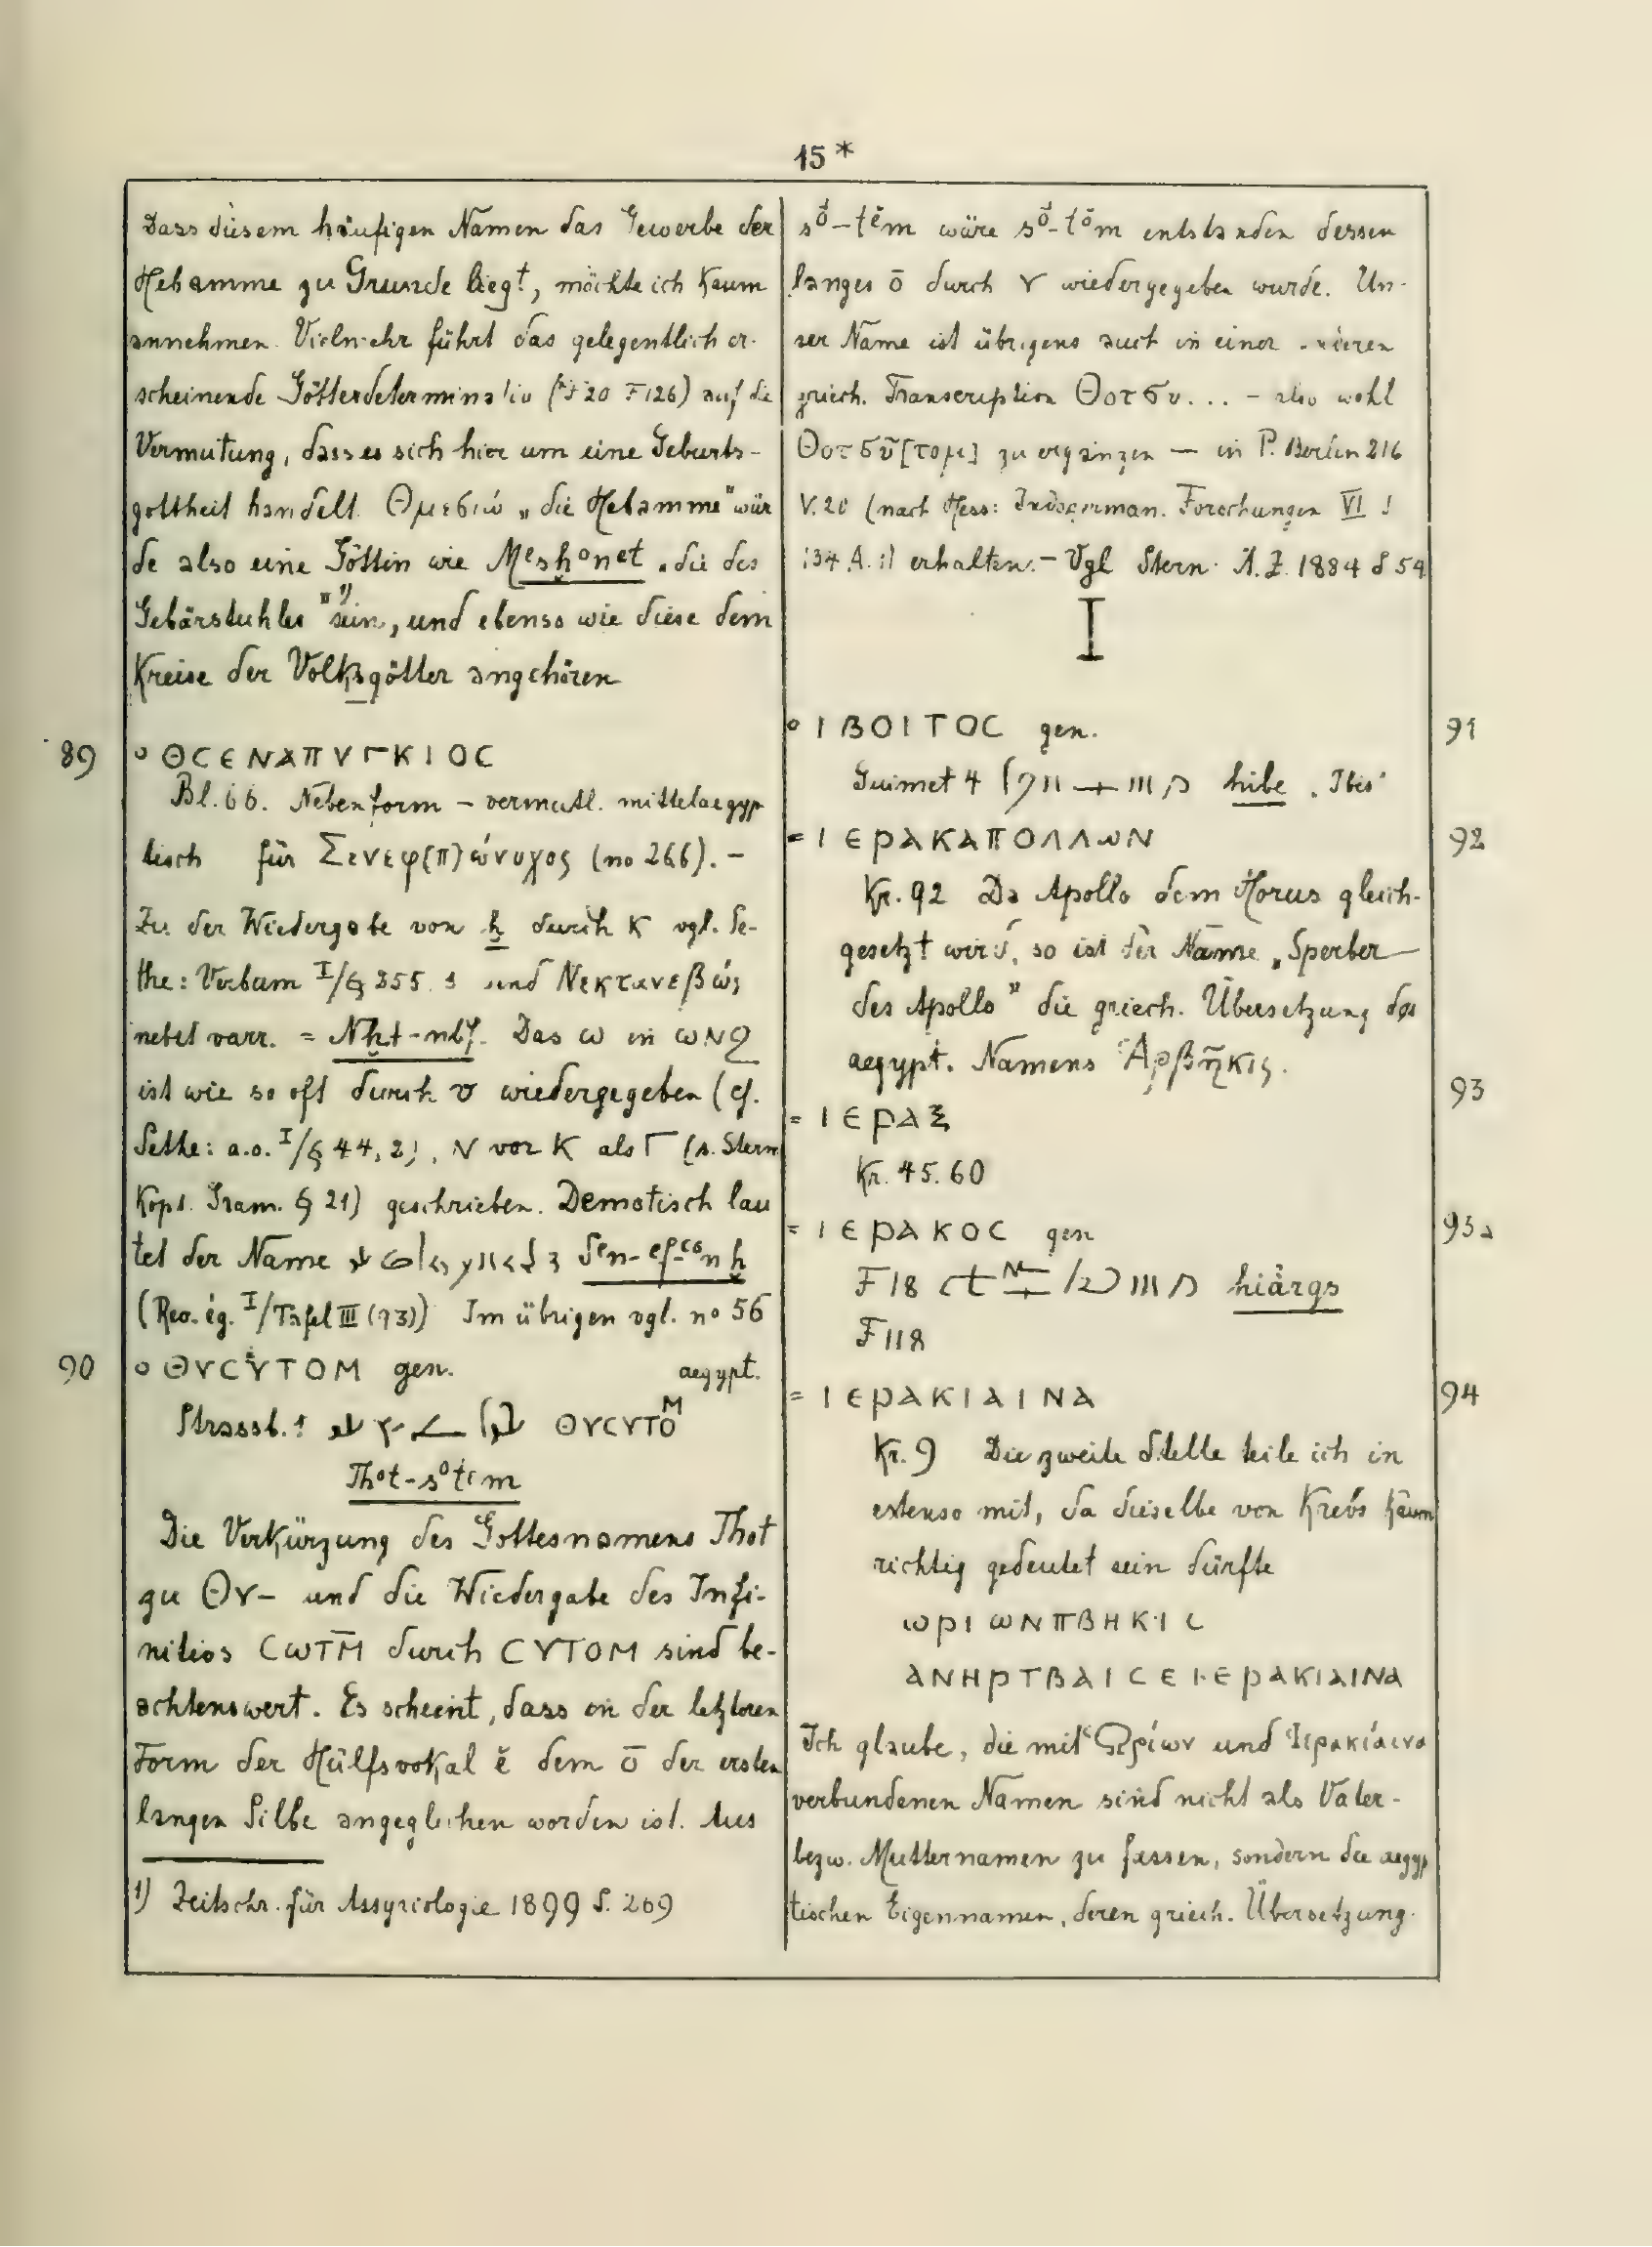 15*
Dass diesem häufigen Namen das Gewerbe der
Hebamme zu Grunde liegt, möchte ich kaum
annehmen. Vielmehr führt das gelegentlich er-
scheinende Götterdeterminativ (F 20 F 126) auf die
Vermutung, dass es sich hier um eine Geburts-
gottheit handelt. Θμεσιώ „die Hebamme" wür
de also eine Göttin wie Mesḫonet „die des
Gebärstuhles" 1) sein, und ebenso wie diese dem
Kreise der Volksgötter angehören
89 o ΘCЄNAΠYΓKIOC
Bl. 66. Nebenform – vermutl. mittelaegyp
tisch für Σενεφ(π)ώνυχος (no 266). –
Zu der Wiedergabe von ḫ durch K vgl. Se-
the: Verbum I/§ 255. 3 und Νεκτανεβώς
nebst varr. = Nḫt-nbf. Das ω in ωNϨ
ist wie so oft durch υ wiedergegeben (cf.
Sethe: a.o. I/§ 44, 2), N vor K als Γ (s. Stern
Kopt. Gram. § 21) geschrieben. Demotisch lau
tet der Name Sen-ef-onḫ
(Rev. ég. I/Tafel III (73)) Im übrigen vgl. no 56
90 o ΘYCYTOM gen. aegypt.
Strassb. 1 ΘYCYTOM
Thot-sotem
Die Verkürzung des Gottesnamens Thot
zu ΘY– und die Wiedergabe des Infi-
nitivs CωTM̄ durch CYTOM sind be-
achtenswert. Es scheint, dass in der letzteren
Form der Hülfsvokal ĕ dem ō der ersten
langen Silbe angeglichen worden ist. Aus
1) Zeitschr. für Assyriologie 1899 S. 269
sṓ-tĕm wäre sṓ-tŏm entstanden dessen
langes ō durch Y wiedergegeben wurde. Un-
ser Name ist übrigens auch in einer anderen
griech. Transcription Θοτσυ... – also wohl
Θοτσῦ[τομ] zu ergänzen — in P. Berlin 216
V. 20 (nach Hess: Indogerman. Forschungen VI S
134 A. 1) erhalten. – Vgl Stern Ä. Z. 1884 S 54
I
o IBOITOC gen. 91
Guimet 4 hibe „Ibis"
= IЄPAKAΠOΛΛωN 92
Kr. 92 Da Apollo dem Horus gleich-
gesetzt wird, so ist der Name „Sperber
des Apollo" die griech. Übersetzung des
aegypt. Namens Ἁρβῆκις.
= IЄPAΞ 93
Kr. 45. 60
= IЄPAKOC gen 93a
F 18 hiàrqs
F 118
= IЄPAKIAINA 94
Kr. 9 Die zweite Stelle teile ich in
extenso mit, da dieselbe von Krebs kaum
richtig gedeutet sein dürfte
ωPIωNΠBHKIC
ANHPTBAICЄIЄPAKIAINA
Ich glaube, die mit Ὡρίων und Ἱερακίαινα
verbundenen Namen sind nicht als Vater-
bezw. Mutternamen zu fassen, sondern die aegyp
tischen Eigennamen, deren griech. Übersetzung